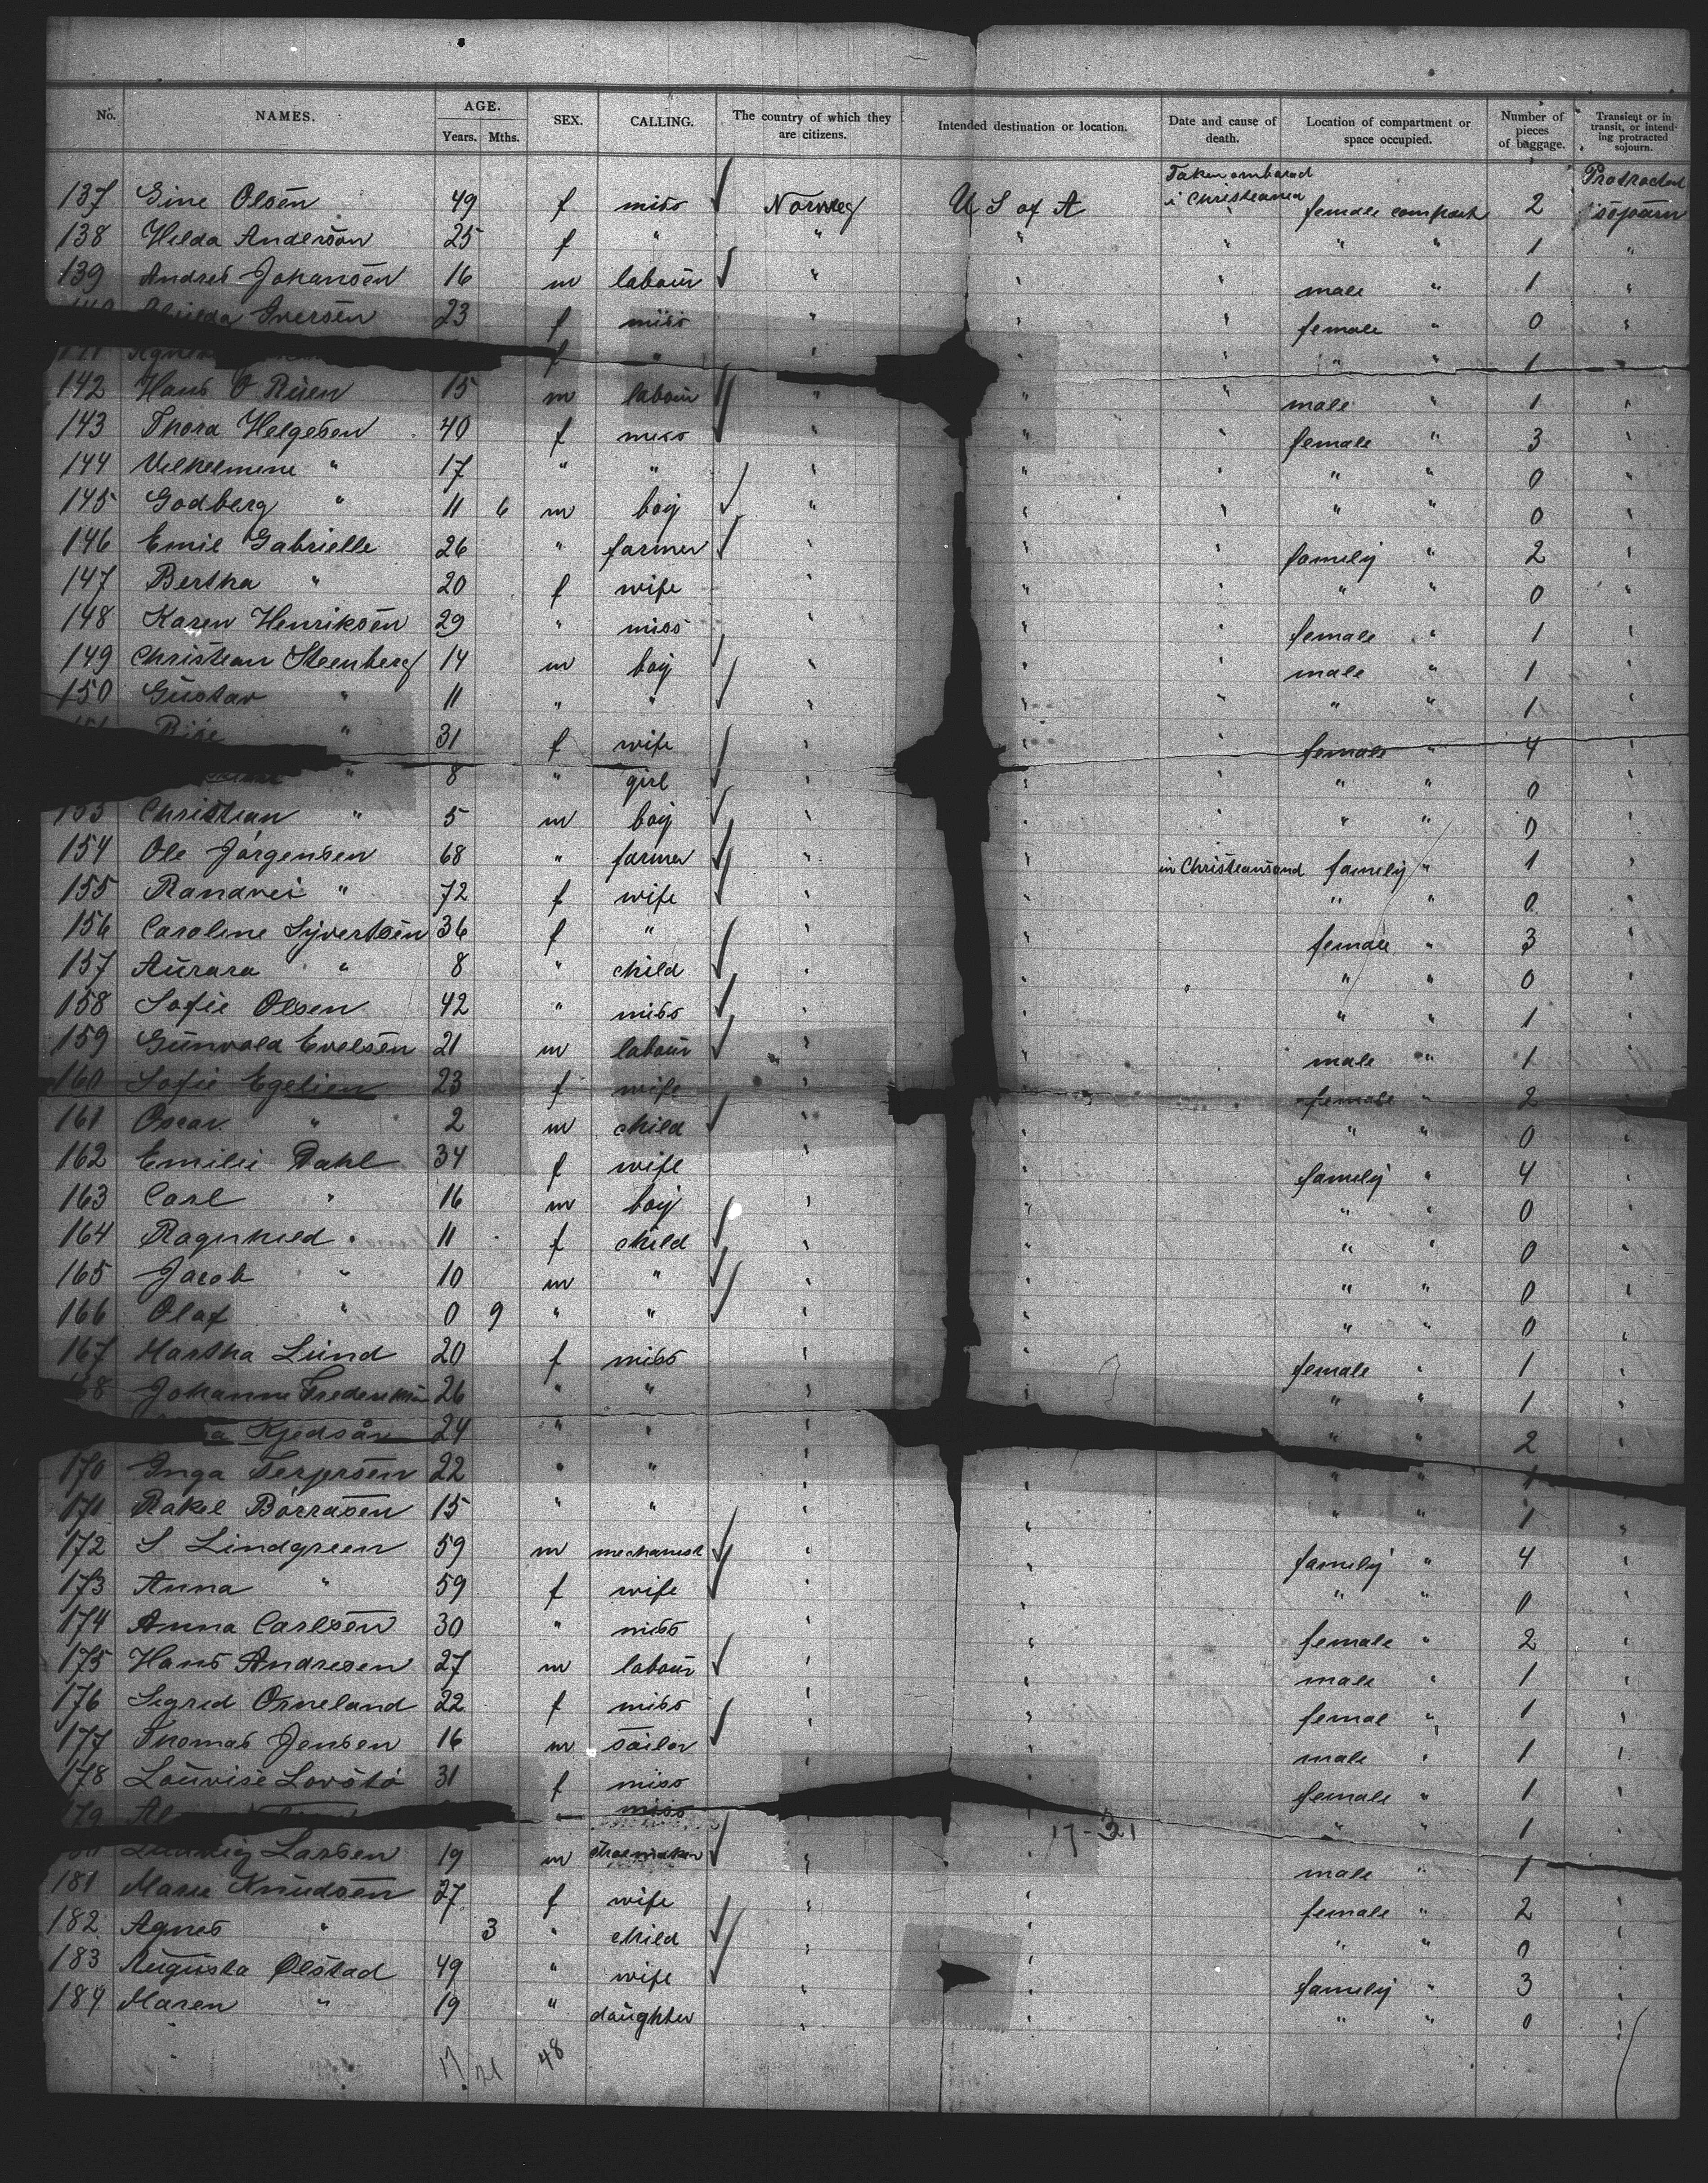 No. NAMES. AGE. Years. Mths. SEX. CALLING. The country of which they are citizens. Intended destination or location. Date and cause of death. Location of compartment or space occupied. Number of pieces of baggage. Transient or in transit, or intending protracted sojourn.
137 Gine Olsen 49 f miss Norweg U S of A Taken ombarad i Christeania female compart 2 Protracted sojourn
138 Hilda Anderson 25 f " " " " " " 1 "
139 Andres Johansen 16 m labour " " " male " 1 "
Iversen 23 f miss " " " female " 0 "
141 f " " " " " " 1
142 Hans O Ruen 15 m labour " " " male " 1 "
143 Thora Helgesen 40 f miss " " " female " 3 "
144 Vilhelmine " 17 " " " " " " " 0 "
145 Godberg " 11 6 m boy " " " " " 0 "
146 Emil Gabrielle 26 " farmer " " " famely " 2 "
147 Bertha " 20 f wife " " " " " 0 "
148 Karen Henriksen 29 " miss " " " female " 1 "
149 Christean Steenberg 14 m boy " " " male " 1 "
150 Gustav " 11 " " " " " " " 1 "
" 31 f wife " " " female " 4 "
" 8 " girl " " " " " 0 "
153 Christean " 5 m boy " " " " " 0 "
154 Ole Jörgensen 68 " farmer " " in Christeansand famely " 1 "
155 Randvei " 72 f wife " " " " 0 "
156 Caroline Syvertsen 36 f " " " female " 3 "
157 Aurara " 8 " child " " " " " 0 "
158 Sofie Olsen 42 " miss " " " " 1 "
159 Gunvald Evelsen 21 m labour " " male " 1 "
160 Sofie Egelien 23 f wife " " female " 2 "
161 Oscar " 2 m child " " " " 0 "
162 Emilie Dahl 34 f wife " " famely " 4 "
163 Carl " 16 m boy " " " " 0 "
164 Ragnhild " 11 f child " " " " 0 "
165 Jacob " 10 m " " " " " 0 "
166 Olaf " 0 9 " " " " " " 0 "
167 Martha Lund 20 f miss " " female " 1 "
Johanne Frederiksen 26 " " " " " " 1 "
Kjedsån 24 " " " " " " 2 "
170 Inga Terjersen 22 " " " " " " 1 "
171 Rakel Börrasen 15 " " " " " " 1 "
172 S Lindgreen 59 m mechanich " " famely " 4 "
173 Anna " 59 f wife " " " " 0 "
174 Anna Carlsen 30 " miss " " female " 2 "
175 Hans Andresen 27 m labour " " male " 1 "
176 Sigred Orneland 22 f miss " " femal " 1 "
177 Thomas Jensen 16 m sailor " " male " 1 "
178 Louvise Lovstö 31 f miss " " female " 1 "
179 miss " " " 1 "
17-31
Ludvig Larsen 19 m shoemaker " " male " 1 "
181 Marie Knudsen 27 f wife " " female " 2 "
182 Agnes " 3 " child " " " " 0 "
183 Augusta Ølstad 49 " wife " " famely " 3 "
184 Maren " 19 " daughter " " " " 0 "
48